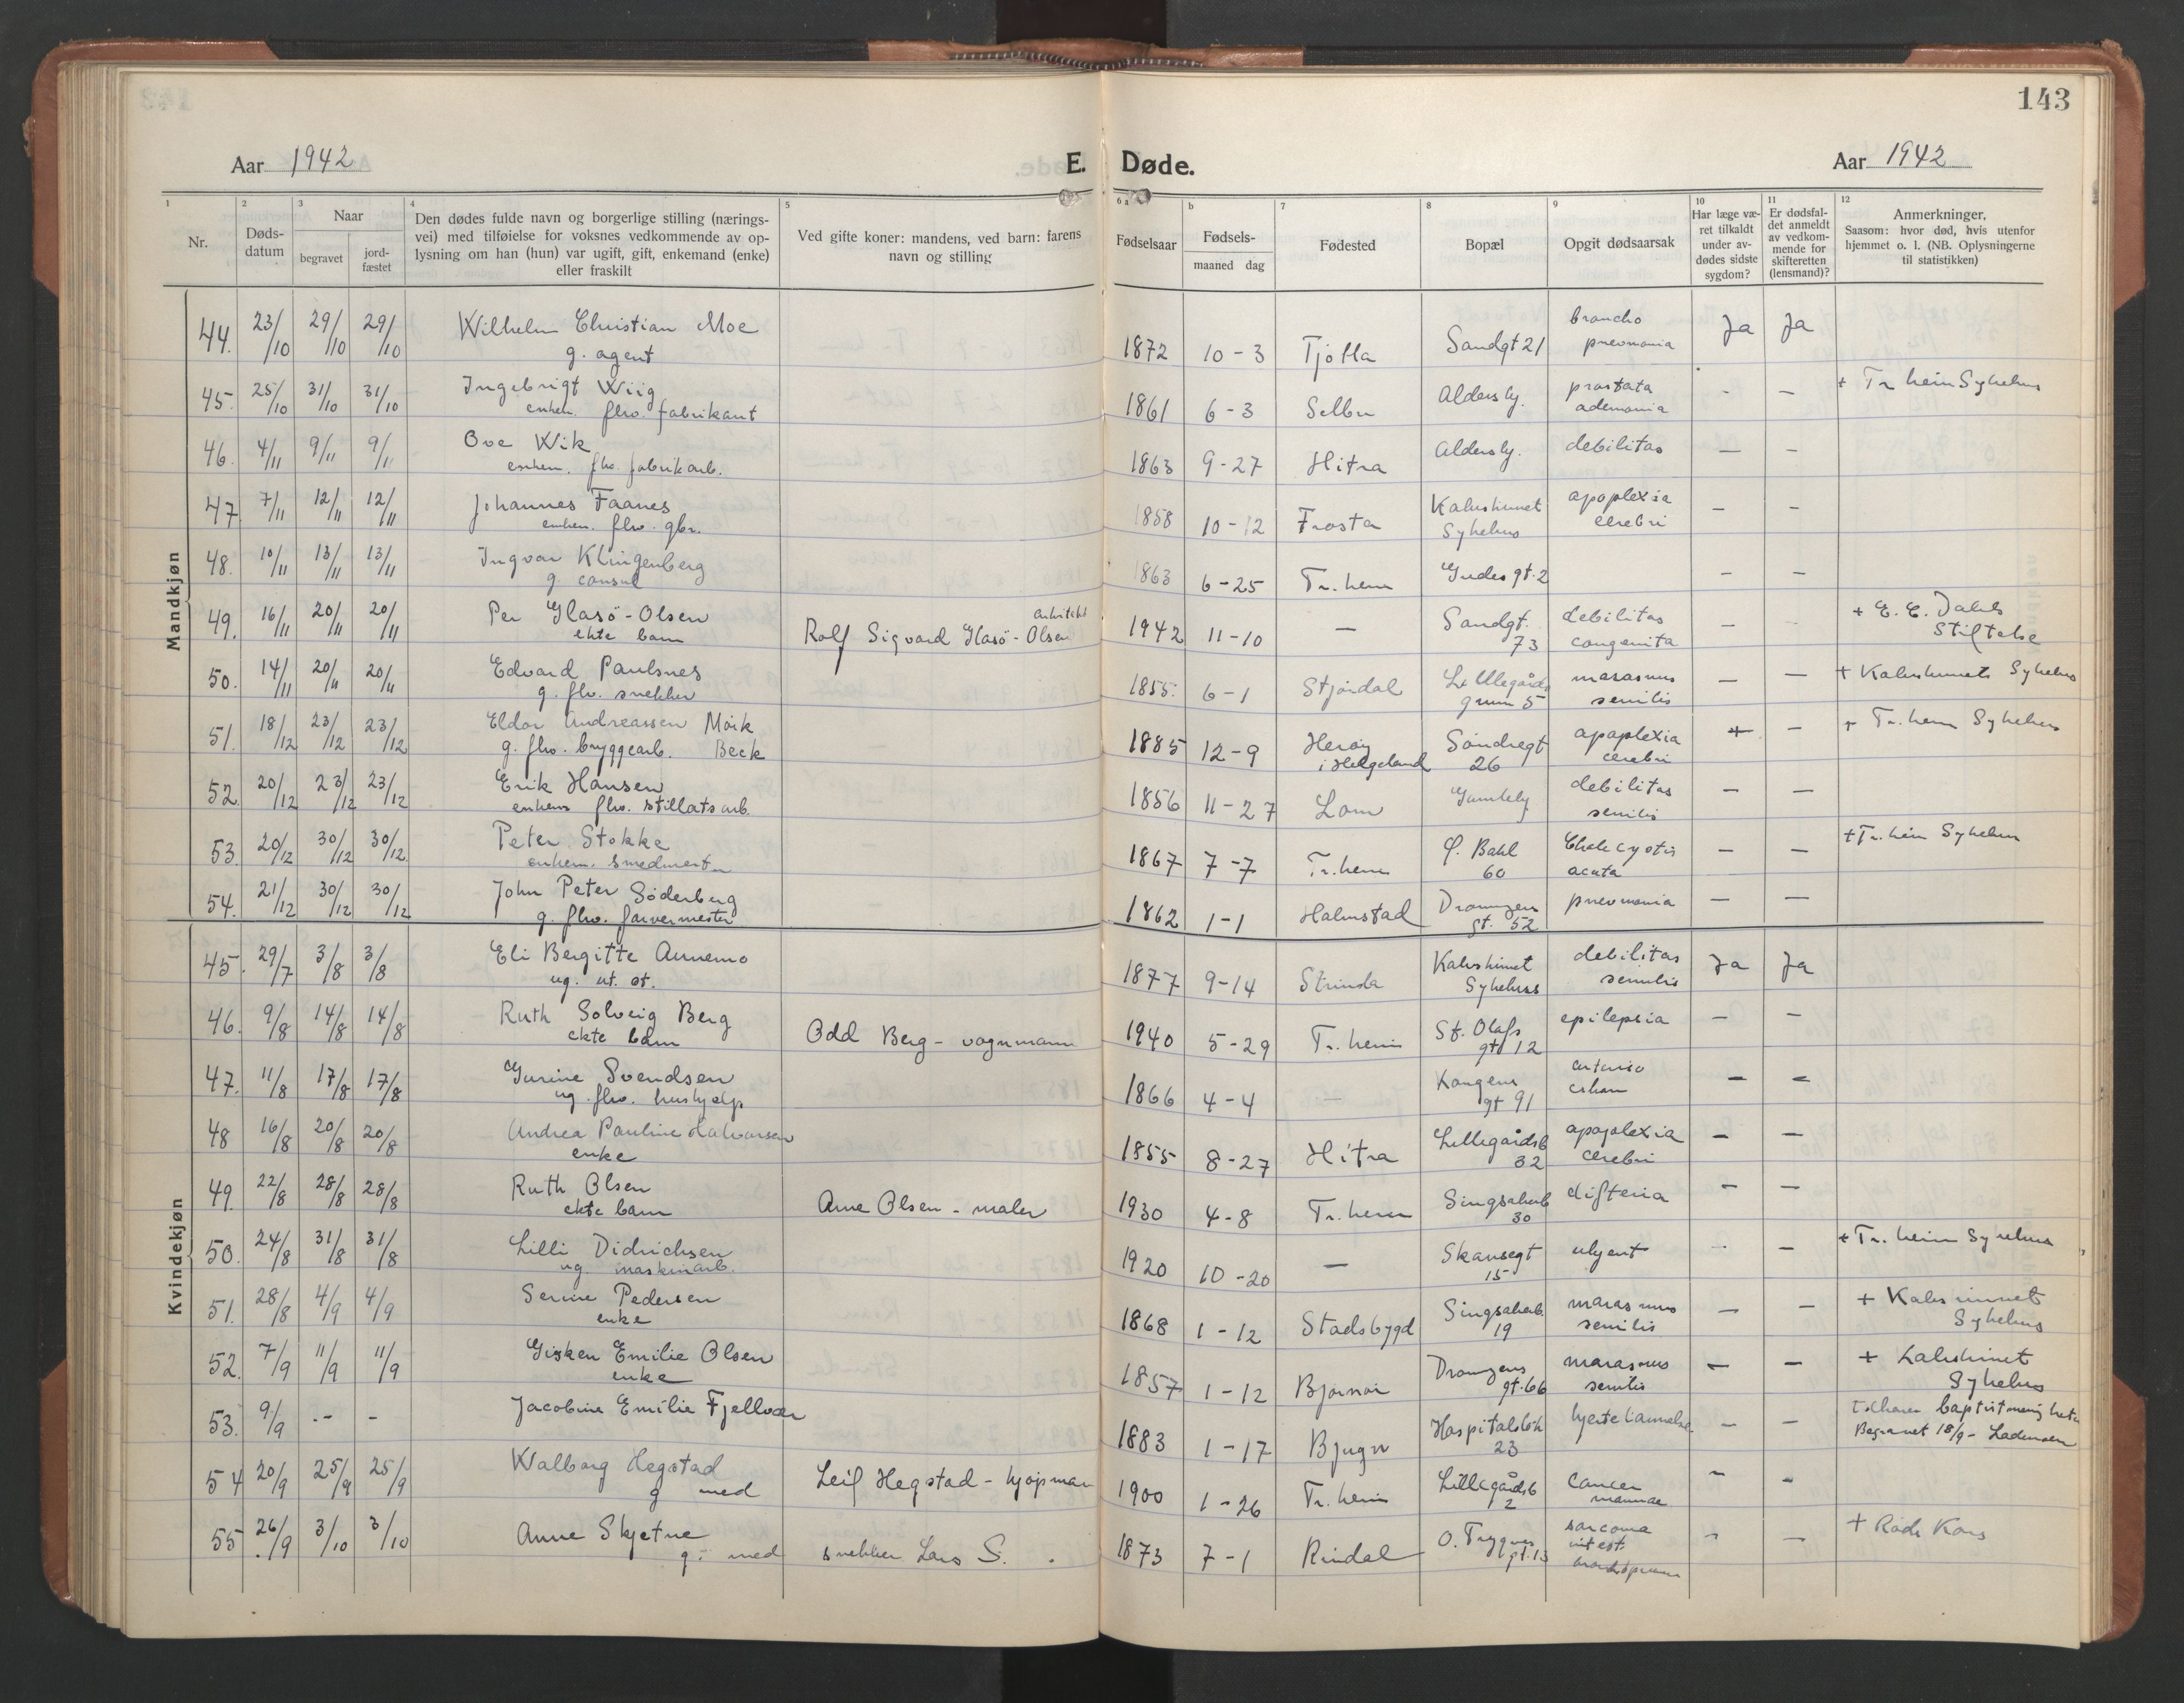 143
Aar 1942
E. Døde.
Aar 1942
1 2 3 4 5 6 a b 7 8 9 10 11 12
Nr.
Døds-
datum
Naar
begravet
jord-
fæstet
Den dødes fulde navn og borgerlige stilling (nærings-
vei) med tilføielse for voksnes vedkommende av op-
lysning om han (hun) var ugift, gift, enkemand (enke)
eller fraskilt
Ved gifte koner: mandens, ved barn: farens
navn og stilling
Fødselsaar
Fødsels-
maaned dag
Fødested
Bopæl
Opgit dødsaarsak
Har læge væ-
ret tilkaldt
under av-
dødes sidste
sygdom?
Er dødsfal-
det anmeldt
av vedkom-
mende for
skifteretten
(lensmand)?
Anmerkninger,
Saasom: hvor død, hvis utenfor
hjemmet o. l. (NB. Oplysningerne
til statistikken)
Mandkjøn
44. 23/10 29/10 29/10 Wilhelm Christian Moe 1872 10-3 Tjøtta Sandgt 21 broncho Ja Ja
g. agent pneomonia
45. 25/10 31/10 31/10 Ingebrigt Wiig 1861 6-3 Selbu Aldershj. prostata - - + Tr heim Sykehus
enkem. fhv. fabrikant ademonia
46. 4/11 9/11 9/11 Ove Wik 1863 9-27 Hitra Aldershj. debilitas - -
enkem. fhv. fabrikarb.
47 7/11 12/11 12/11 Johannes Faanes 1858 10-12 Frosta Kalvskinnet apoplexia - -
enkem. fhv. gbr. Sykehus cerebri
48. 10/11 13/11 13/11 Ingvar Klingenberg 1863 6-25 Tr.heim Gudes gt. 2 - -
g. consul
49. 16/11 20/11 20/11 Per Glasö-Olsen Rolf Sigvard Glasö-Olsen arkitekt 1942 11-10 - Sandgt. debilitas - - + E. C. Dahls
ekte barn 73 congenita Stiftelse
50. 14/11 20/11 20/11 Edvard Paulsnes 1855 6-1 Stjördal Lillegårds marasmus - - + Kalvskinnets Sykehus
g. fhv. snekker grunn 5 senilis
51. 18/12 23/12 23/12 Eldor Andreassen Mörk 1885 12-9 Heröy Söndregt apoplexia + - + Tr. heim Sykehus
g. fhv. bryggearb. Beck i Helgeland 26 cerebri
52. 20/12 23/12 23/12 Erik Hansen 1856 11-27 Lom Gamlehj. debilitas - -
enkem fhv. stillatsarb. senilis
53. 20/12 30/12 30/12. Peter Stokke 1867 7-7 Tr.heim Ø. Bakl - - + Tr. heim Sykehus
enkem. smedmester 60 acuta
54. 21/12 30/12 30/12 John Peter Söderberg 1862 1-1 Halmstad Dronningen pneomonia - -
g. fhv. farvermester gt. 52
Kvindekjøn
45. 29/7 3/8 3/8 Eli Bergitte Aunemo 1877 9-14 Strinda Kalvskinnet debilitas Ja Ja
ug. ut. st. Sykehus senilis
46. 9/8 14/8 14/8 Ruth Solveig Berg Odd Berg - vognmann 1940 5-29 Tr. heim St. Olafs epilepsia - -
ekte barn gt 12
47. 11/8 17/8 17/8 Gurine Svendsen 1866 4-4 - Kongens - -
ug. fhv. hushjelp gt 91
48 16/8 20/8 20/8 Andrea Pauline Halvorsen 1855 8-27 Hitra Lillegårdsb apoplexia - -
enke 32 cerebri
49. 22/8 28/8 28/8 Ruth Olsen Arne Olsen - maler 1930 4-8 Tr. heim Singsakerb difteria - -
ekte barn 30
50. 24/8 31/8 31/8 Lilli Didrichsen 1920 10-20 - Skansegt ukjent - - + Tr. heim Sykehus
ug. maskinarb. 15
51. 28/8 4/9 4/9 Serine Pedersen 1868 1-12 Stadsbygd Singsakerb. marasmus - - + Kalvskinnet
enke 19 senilis Sykehus
52. 7/9 11/9 11/9 Gisken Emilie Olsen 1857 1-12 Bjørnör Dronningens marasmus - - + Kalvskinnet
enke gt. 66 senilis Sykehus
53. 9/9 - - Jacobine Emilie Fjellvær 1883 1-17 Bjugn Hospitalslök hjertelammelse - - baptistmenigheten
23 Begravet 18/9 - Lademoen
54 20/9 25/9 25/9 Walborg Hegstad Leif Hegstad - kjøpman 1900 1-26 Tr. heim Lillegårdsb cancer - -
g med 2 mammae
55 26/9 3/10 3/10 Anne Skjetne 1873 7-1 Rindal O. Trygves sarcoma - - + Röde Kors
g. med snekker Lars S. gt. 13 intest.